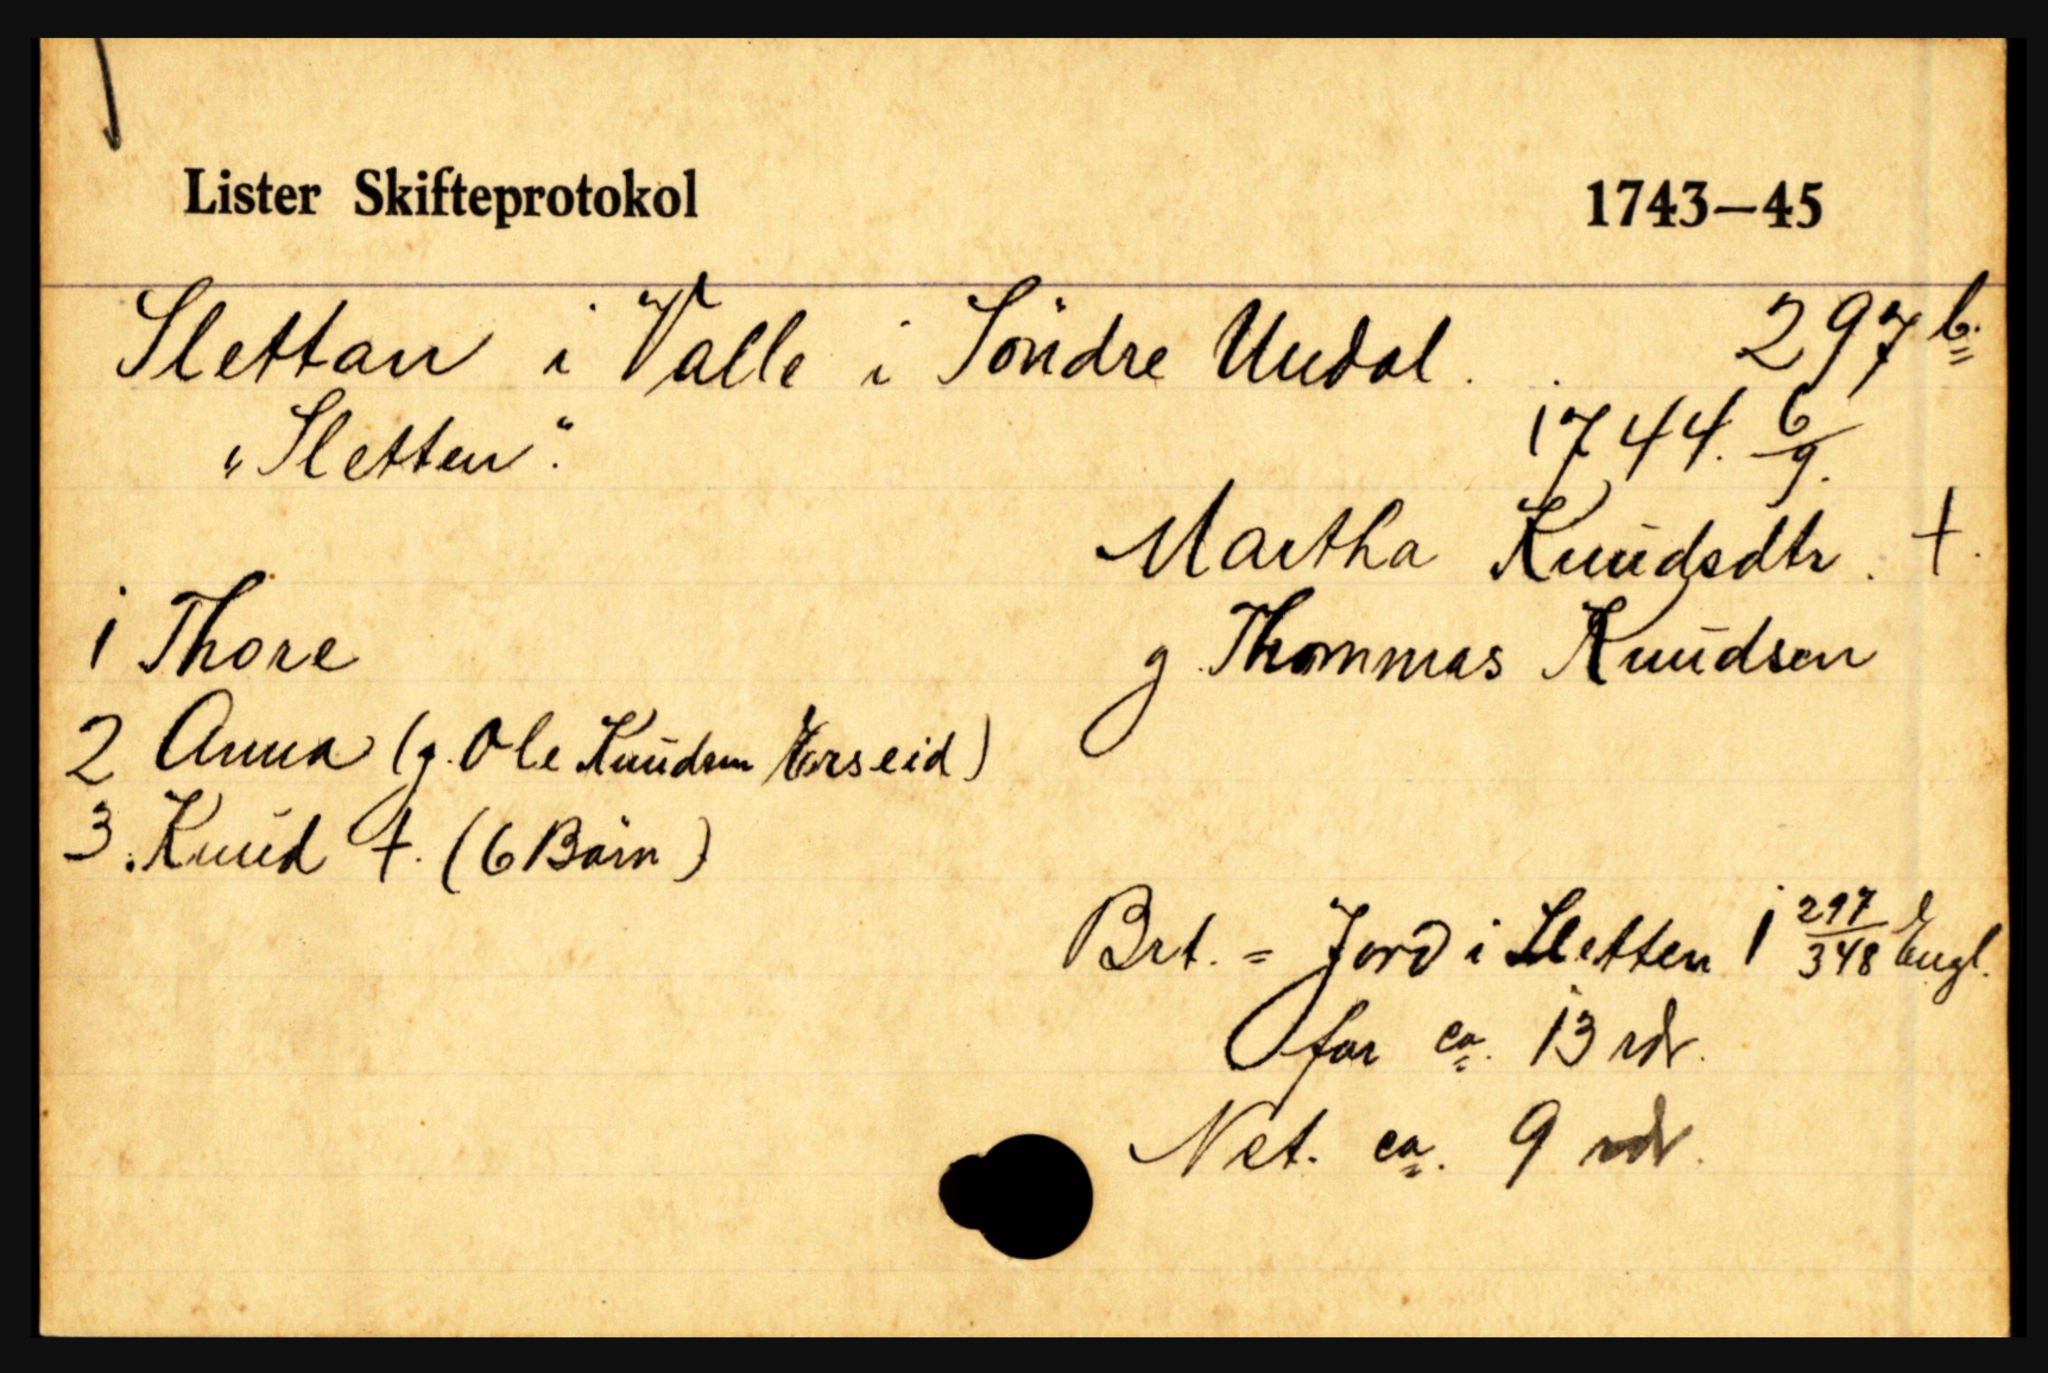 Lister Skifteprotokol 1743—45
Slettan i Valle i Söndre Undal. . 297 b.
„Sletten“. 1744. 6/9.
Martha Knudsdtr. †.
1 Thore g. Thommas Knudsen
2 Anna (g. Ole Knudsen Vorseid)
3. Knud †. (6 Börn)
Brt. = Jord i Sletten 1 297/348 Engl.
for ca. 13 rdr.
Net. ca. 9 rdr.